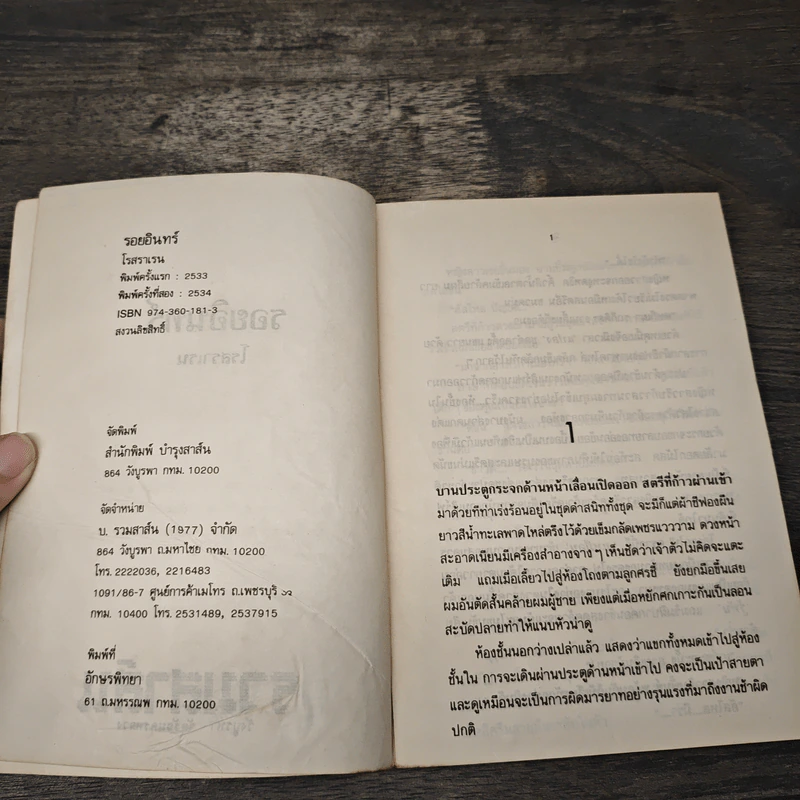 รอยอินทร์
โรสราเรน
พิมพ์ครั้งแรก : 2533
พิมพ์ครั้งที่สอง : 2534
ISBN 974-360-181-3
สงวนลิขสิทธิ์
จัดพิมพ์
สำนักพิมพ์ บำรุงสาส์น
864 วังบูรพา กทม. 10200
จัดจำหน่าย
บ. รวมสาส์น (1977) จำกัด
864 วังบูรพา ถ.มหาไชย กทม. 10200
โทร. 2222036, 2216483
1091/86-7 ศูนย์การค้าเมโทร ถ.เพชรบุรี
กทม. 10400 โทร. 2531489, 2537915
พิมพ์ที่
อักษรพิทยา
61 ถ.มหรรณพ กทม. 10200
1
1
บานประตูกระจกด้านหน้าเลื่อนเปิดออก สตรีที่ก้าวผ่านเข้า
มาด้วยทีท่าเร่งร้อนอยู่ในชุดดำสนิททั้งชุด จะมีก็แต่ผ้าชีฟองผืน
ยาวสีน้ำทะเลพาดไหล่ตรึงไว้ด้วยเข็มกลัดเพชรแวววาม ดวงหน้า
สะอาดเนียนมีเครื่องสำอางจาง ๆ เห็นชัดว่าเจ้าตัวไม่คิดจะแตะ
เติม แถมเมื่อเลี้ยวไปสู่ห้องโถงตามลูกศรชี้ ยังยกมือขึ้นเสย
ผมอันตัดสั้นคล้ายผมผู้ชาย เพียงแต่เมื่อหยักศกเกาะกันเป็นลอน
สะบัดปลายทำให้แนบหัวน่าดู
ห้องชั้นนอกว่างเปล่าแล้ว แสดงว่าแขกทั้งหมดเข้าไปสู่ห้อง
ชั้นใน การจะเดินผ่านประตูด้านหน้าเข้าไป คงจะเป็นเป้าสายตา
และดูเหมือนจะเป็นการผิดมารยาทอย่างรุนแรงที่มาถึงงานช้าผิด
ปกติ